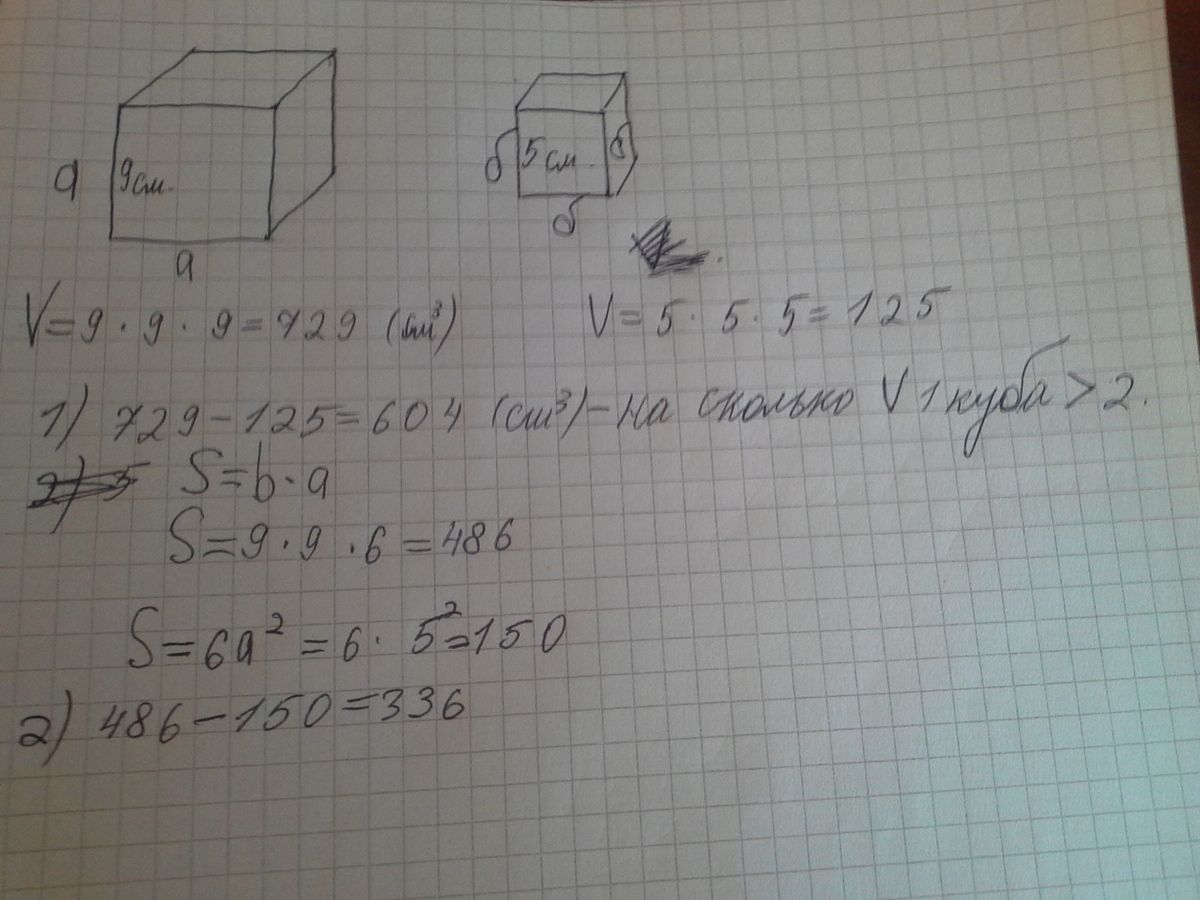 a 9см. a
б 5см. б б
V=9·9·9=729 (см³) V=5·5·5=125
1) 729-125=604 (см³)-на сколько V 1 куба>2.
S=b·a
S=9·9·6=486
S=6a²=6·5²=150
2) 486-150=336